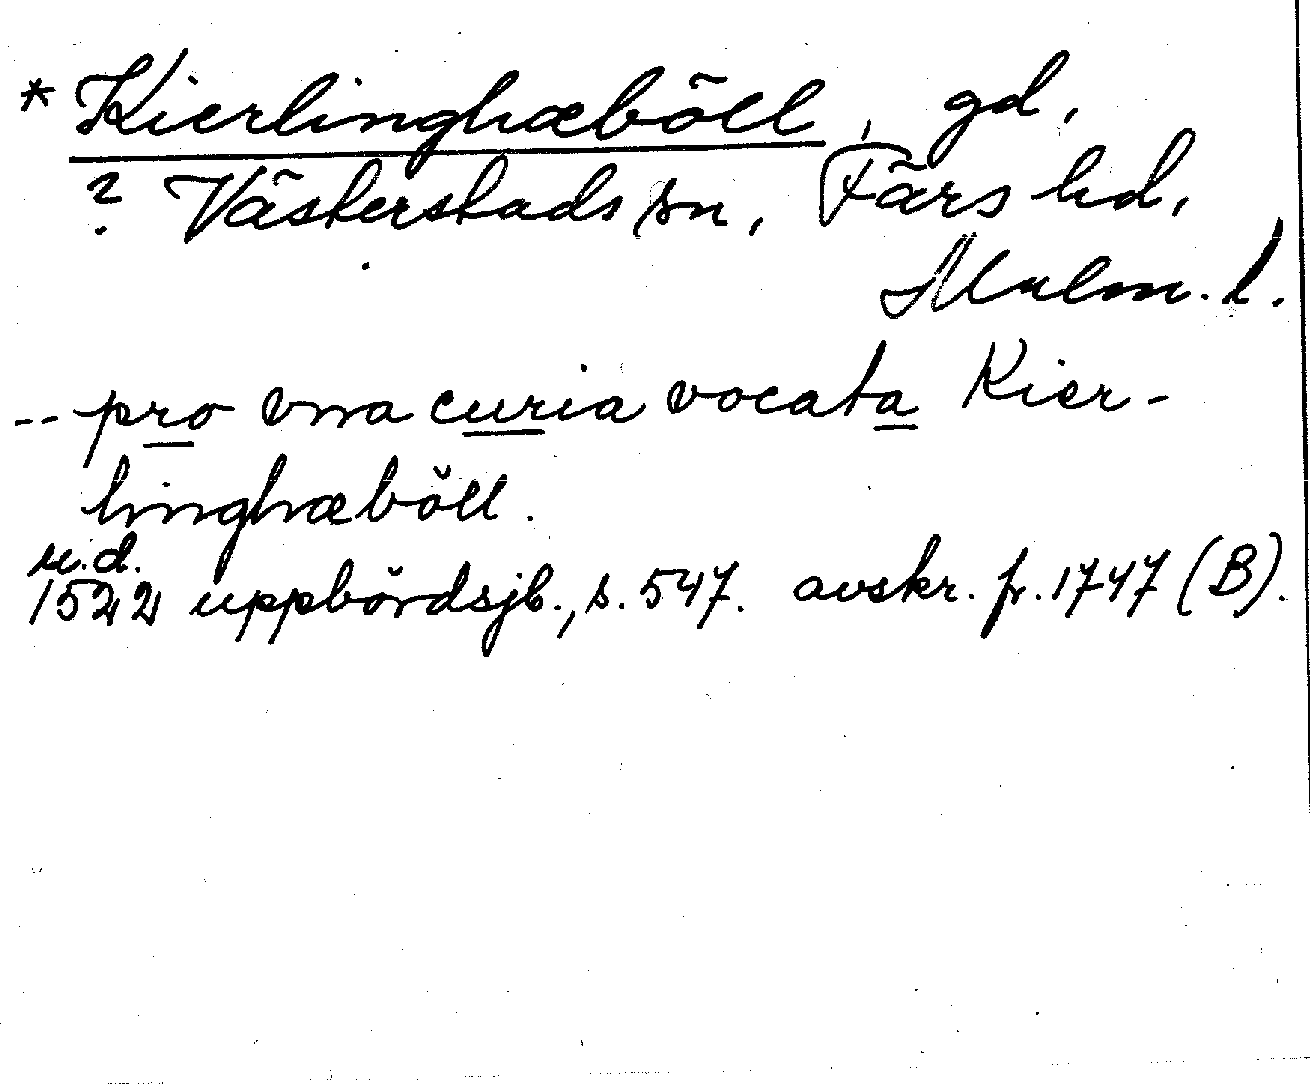 * Kierlinghæböll, gd,
? Västerstads sn, Färs hd,
Malm. l.
-- pro vna curia vocata Kier-
linghæböll.
u.d.
1522 uppbördsjb., s. 547. avskr. fr. 1747 (B).